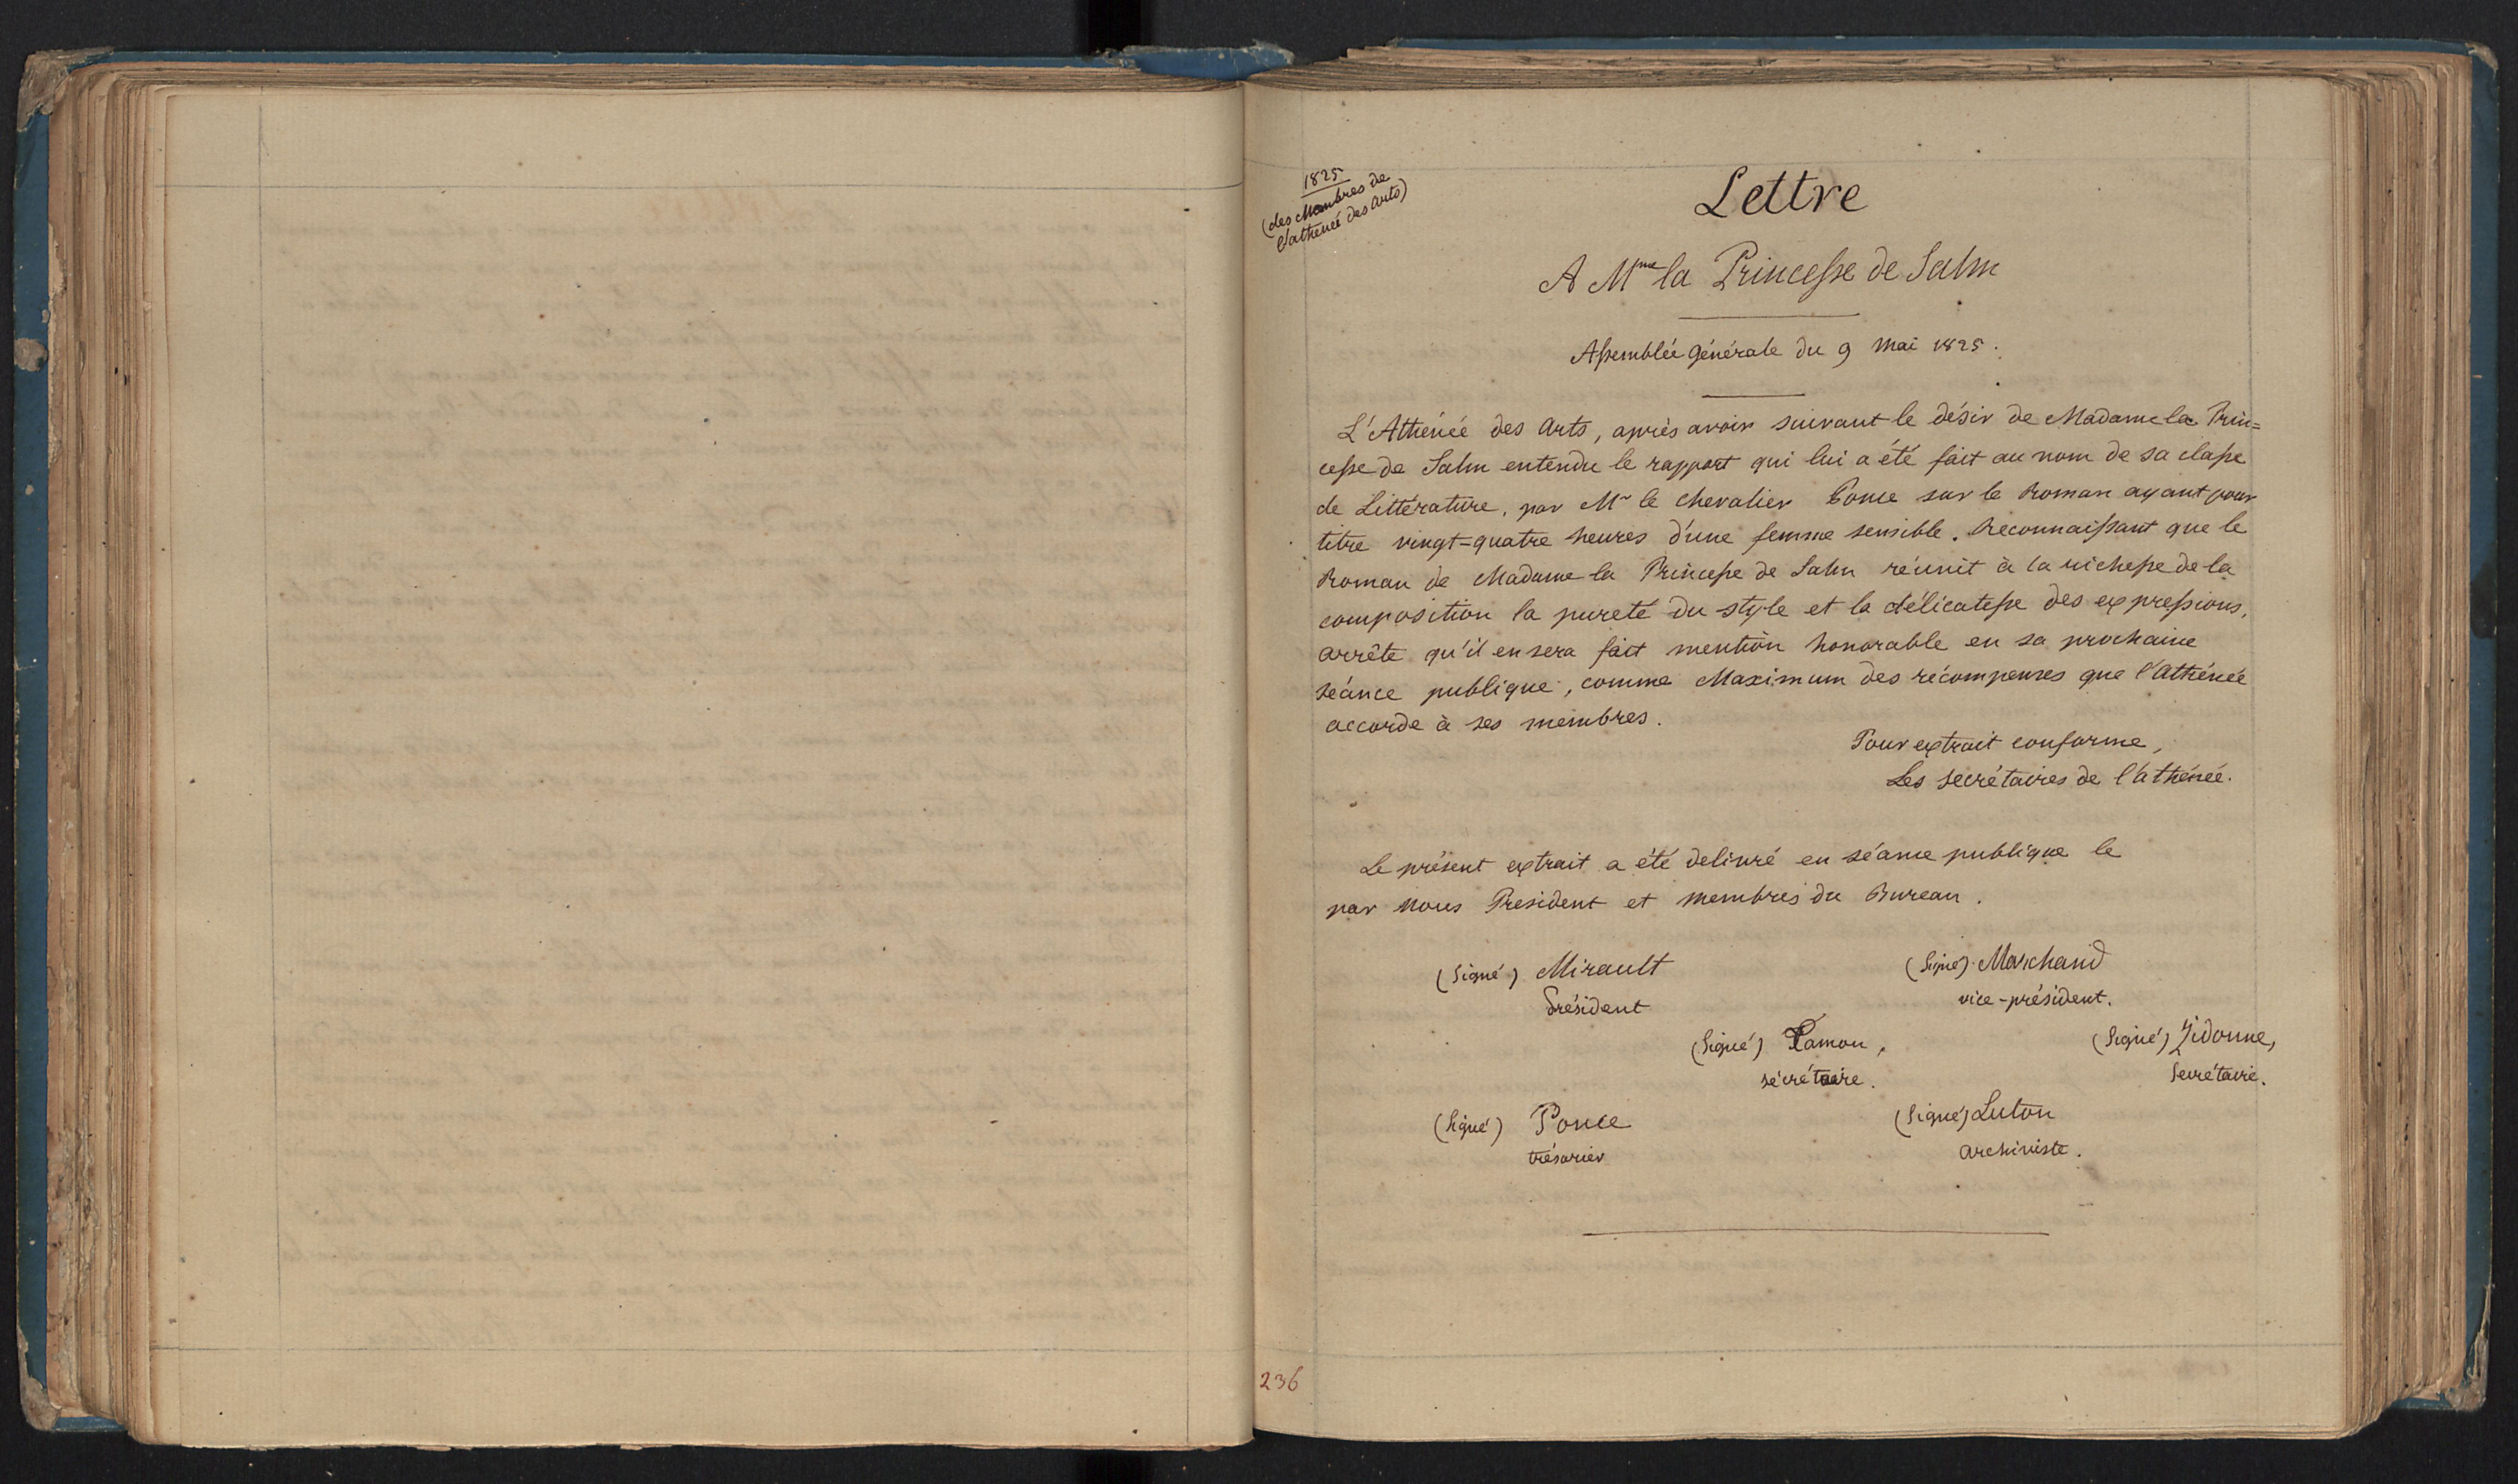 1825
(des Membres de
l'athenée des arts)
Lettre
A Mme la Princesse de Salm
Assemblée générale du 9 mai 1825.
L'Athénée des arts, après avoir suivant le désir de Madame la Prin=
cesse de Salm entendu le rapport qui lui a été fait au nom de sa classe
de Littérature, par Mr le chevalier Ponce sur le Roman ayant pour
titre vingt=quatre heures d'une femme sensible. Reconnaissant que le
Roman de Madame la Princesse de Salm réunit à la richesse de la
composition la pureté du style et la délicatesse des expressions,
arrête qu'il en sera fait mention honorable en sa prochaine
séance publique, comme Maximum des récompenses que l'athénée
accorde à ses membres.
Pour extrait conforme,
Les secrétaires de l'athénée.
Le présent extrait a été delivré en séance publique le
par nous President et membres du Bureau.
(signé) Mirault (signé) Marchand
Président vice-président.
(signé) Ramon, (signé) Zidonne,
sécrétaire. Secrétaire.
(signé) Ponce (signé) Luton
trésorier archiviste.
236